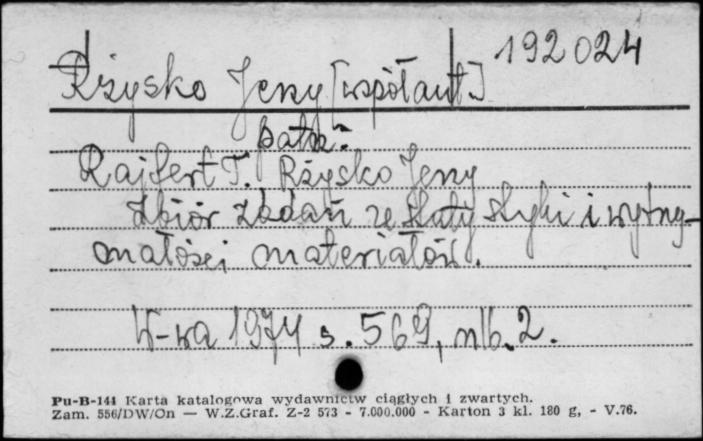 192024
Rżysko Jerzy [współaut.]
patrz:
Rajfert T. Rżysko Jerzy
Zbiór zadań ze statystyki i wytrzy-
małości materiałów.
W-wa 1974 s. 569, nlb. 2.
Pu-B-144 Karta katalogowa wydawnictw ciągłych i zwartych.
Zam. 556/DW/On — W.Z.Graf. Z-2 573 - 7.000.000 - Karton 3 kl. 180 g, - V.76.